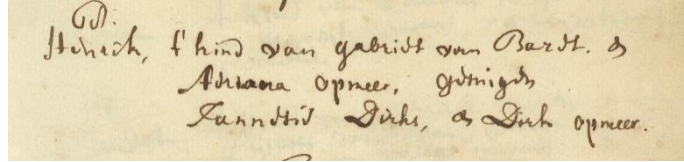 Henrik, t' kind van gabriel van Bardt. &
Adriana opmeer, getuigen
Jannetie Dirks, & Dirk opmeer.